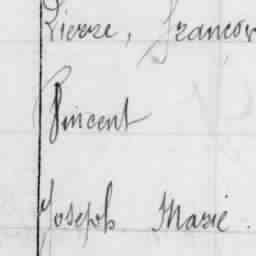 Pierre, Françoi
Vincent
Joseph Marie.